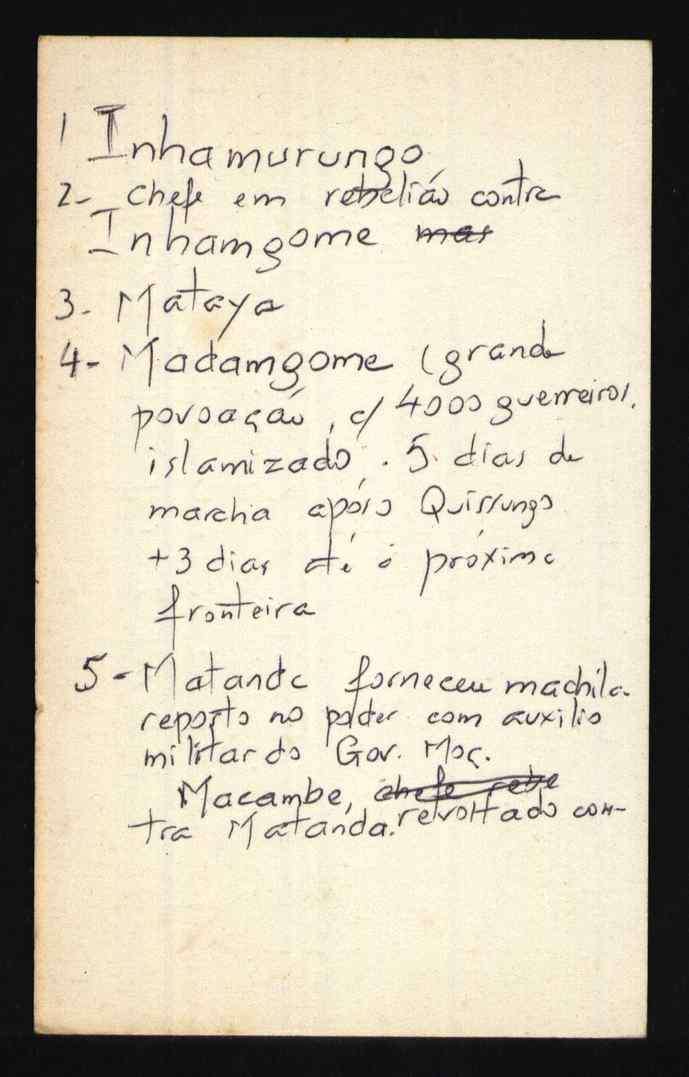 1 Inhamurungo
2- chefe em rebelião contra
Inhamgome mas
3- Mataya
4- Madamgome (grande
povoação, c/ 4000 guerreiros,
islamizado. 5 dias de
marcha após Quissungo
+3 dias até à próxima
fronteira
5- Matanda forneceu machila
reposto no poder com auxilio
militar do Gov. Moç.
Macambe, chefe rebe
revoltado con-
tra Matanda.